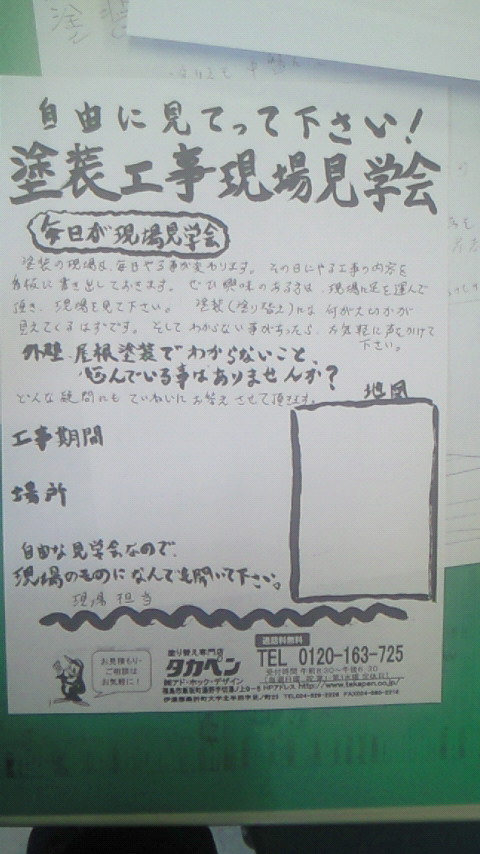 自由に見てって下さい!
塗装工事現場見学会
毎日が現場見学会
塗装の現場は、毎日やる事が変わります。その日にやる工事の内容を
看板に書き出しておきます。ぜひ興味のある方は、現場に足を運んで
頂き、現場を見て下さい。塗装(塗り替え)には何が大切かが
見えてくるはずです。そしてわからない事があったら、お気軽に声をかけて
下さい。
外壁、屋根塗装でわからないこと、
悩んでいる事はありませんか?
どんな疑問にもていねいにお答えさせて頂きます。
地図
工事期間
場所
自由な見学会なので、
現場のものになんでも聞いて下さい。
現場担当
お見積もり・
ご相談は
お気軽に!
塗り替え専門店
タカペン
㈱アド・ホック・デザイン
通話料無料
TEL 0120-163-725
受付時間 午前8:30〜午後6:30
HPアドレス http://www.takapen.co.jp/